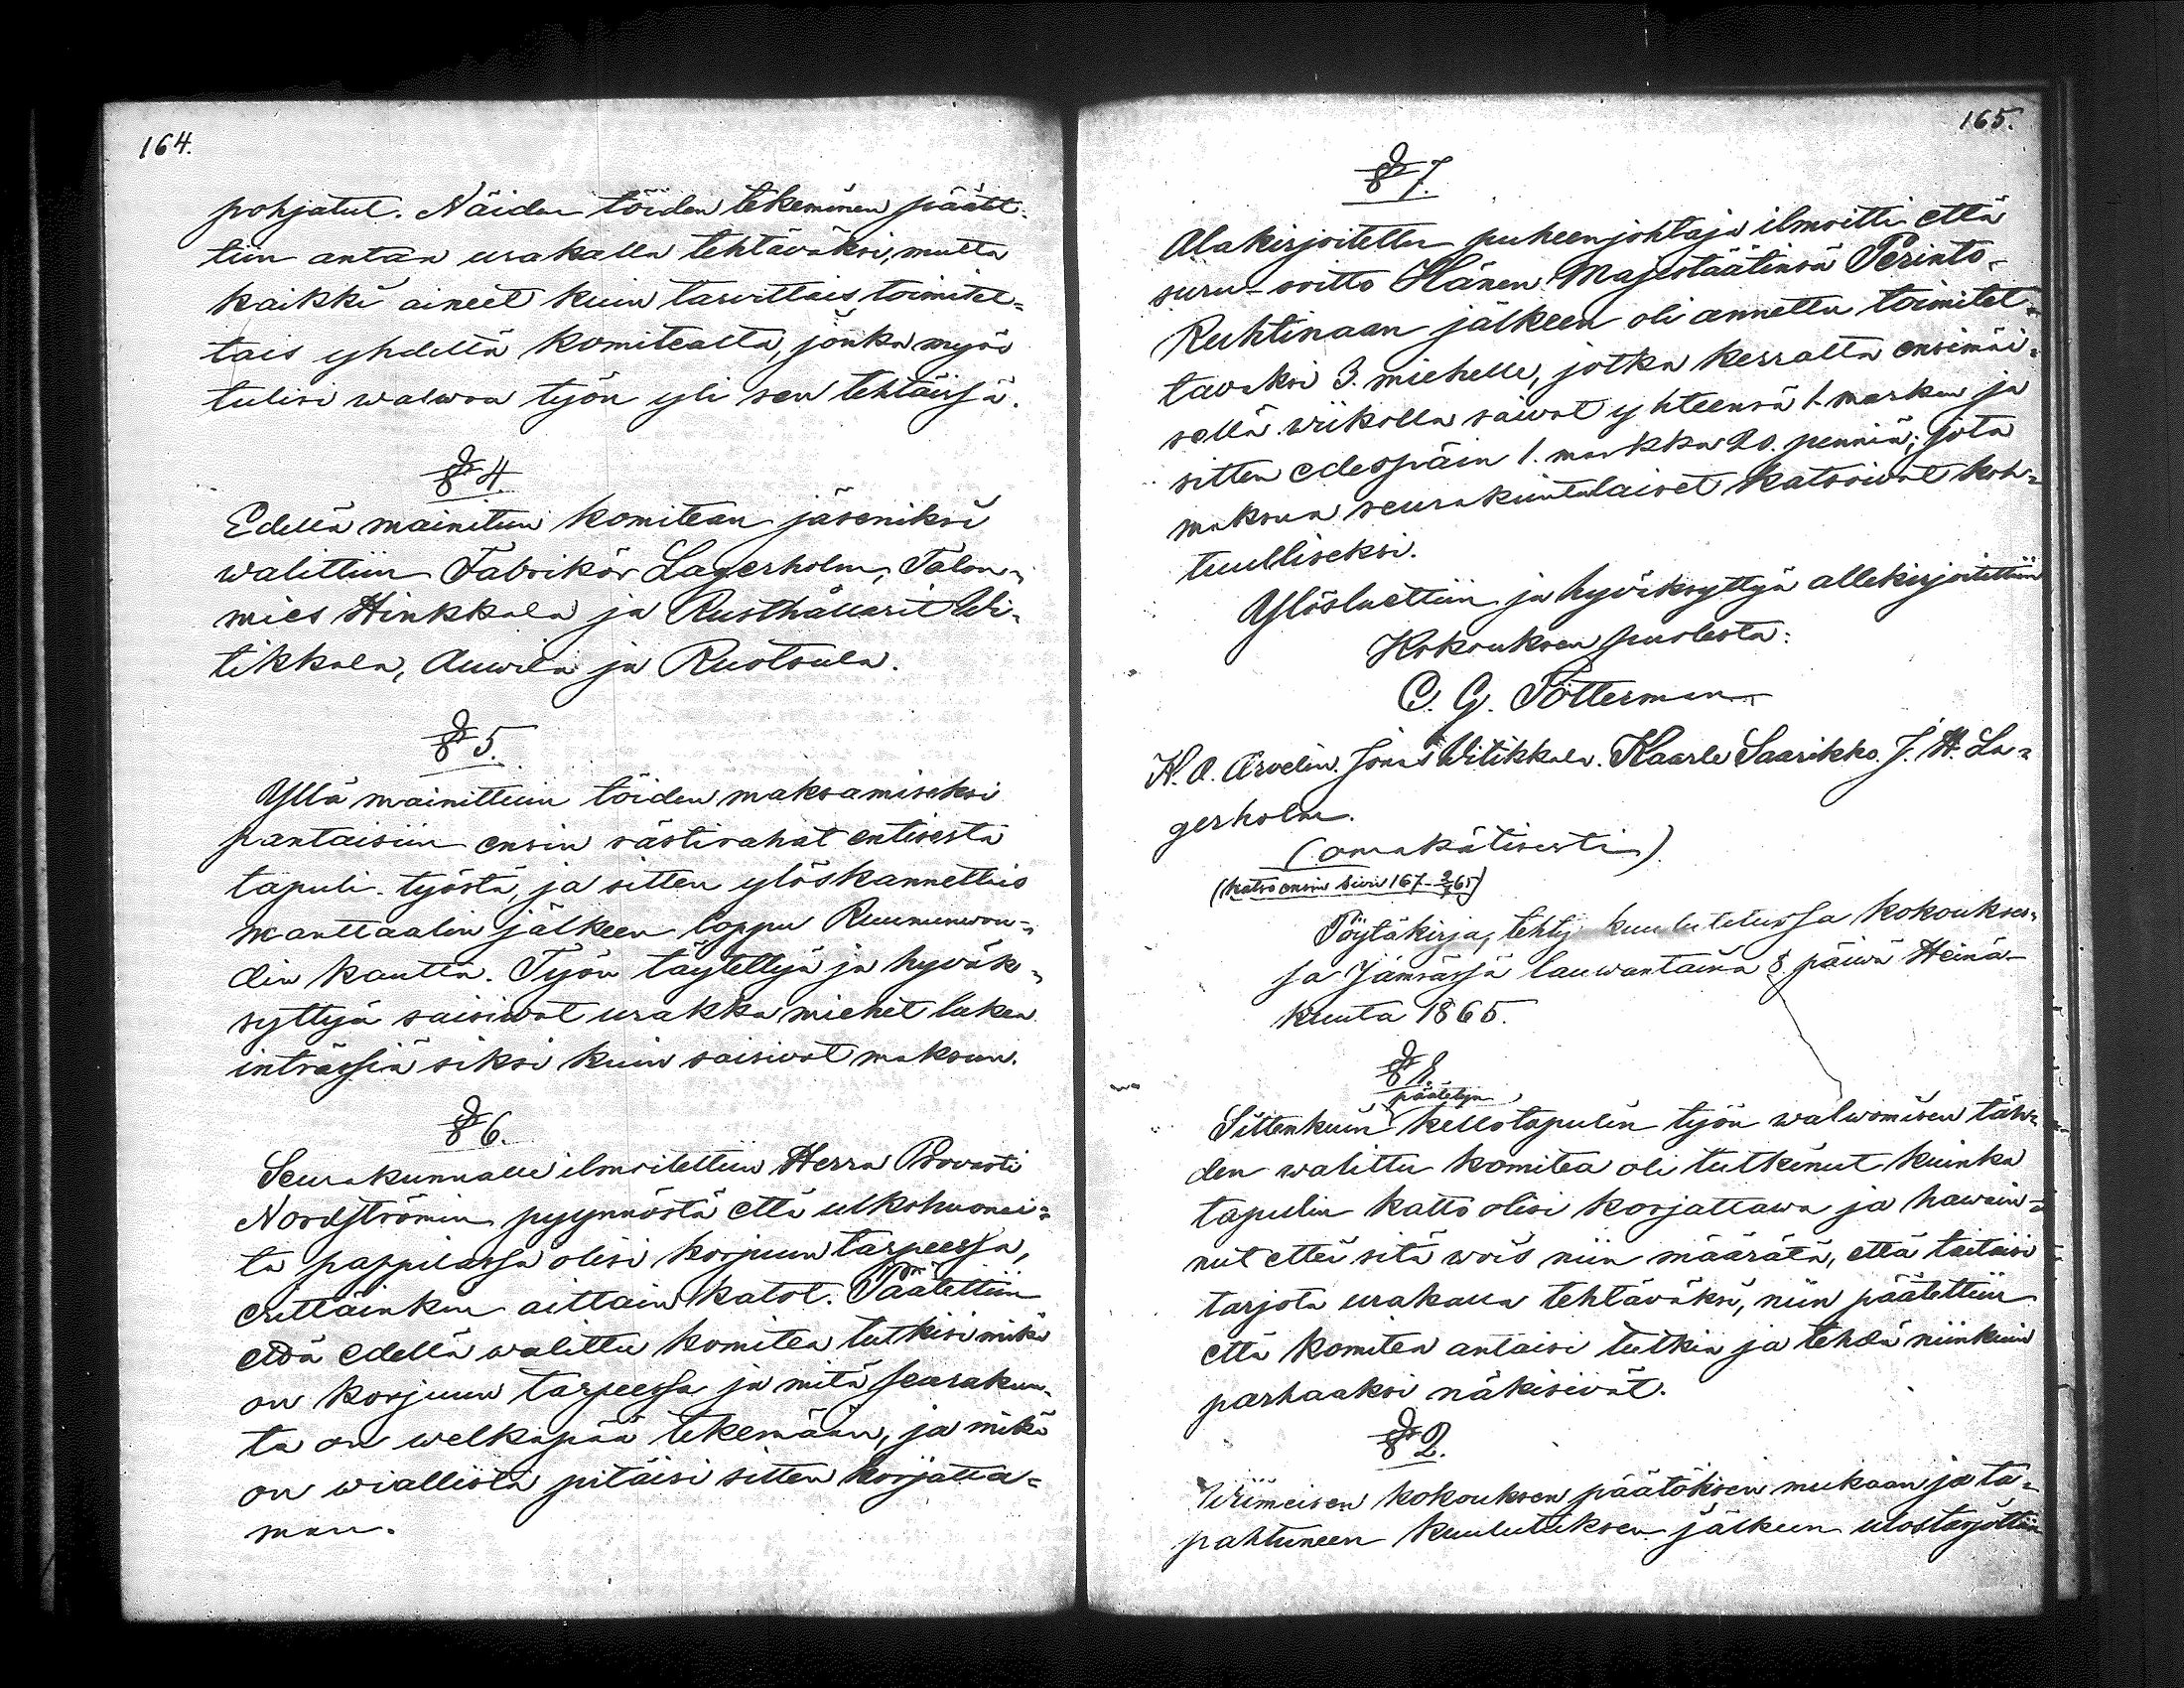 164.
pohjatut. Näiden töiden tekeminen päätet-
tiin antaa urakalla tehtäväksi, mutta
kaikki aineet kuin tarvittais toimitet-
tais yhdeltä komitealta, jonka myös
tulisi walwoa työn yli sen tehtäissä.
§ 4.
Edellä mainitun komitean jäseniksi
walittiin Fabrikör Lagerholm, Talon-
mies Hinkkala ja Rusthållarit Wi-
tikkala, Auwila ja Ruotsula.
§ 5.
Yllä mainittuin töiden maksamiseksi
pantaisiin ensin rästirahat entisestä
tapuli-työstä, ja sitten ylöskannettais
manttaalin jälkeen loppu Ruununwou-
din kautta. Työn täytettyä ja hyväk-
syttyä saisiwat urakka miehet lukea
inträssiä siksi kuin saisivat maksun.
§ 6.
Seurakunnalle ilmoitettiin Herra Provasti
Nordströmin pyynnöstä että ulkohuonei-
ta pappilassa olisi korjuun tarpeessa,
erittäinkin aittain katot. Päätettiin
että edellä walittu komitea tutkisi mikä
on korjuun tarpeessa ja mitä seurakun-
ta on welkapää tekemään, ja mikä
on wiallista pitäisi sitten korjatta-
man.
165.
§ 7.
Alakirjoitettu puheenjohtaja ilmoitti että
suru-soitto Hänen Majestäätinsä Perinto-
Ruhtinaan jälkeen oli annettu toimitet-
tavaksi 3. miehelle, jotka kerralta ensimäi-
sellä wiikolla saiwat yhteensä 1. markan ja
sitten edespäin 1. markka 20. penniä; jota
maksua seurakuntalaiset katsoiwat koh-
tuulliseksi.
Ylösluettiin ja hyväksyttyä allekirjoitettiin
Kokouksen puolesta:
C. G. Tötterman
K. A. Arvelin. Jonas Witikkala. Kaarle Saarikko. J. H. La-
gerholm.
(omakätisesti)
(katso ensin sivu 167 2/7 65)
Pöytäkirja, tehty kuulutetussa kokoukses-
sa Jämsässä lauwantaina 8. päiwä Heinä-
kuuta 1865.
§ 1.
päätetyn
Sittenkuin kellotapulin työn walwomisen täh-
den walittu komitea oli tutkinut kuinka
tapulin katto olisi korjattawa ja hawain-
nut ettei sitä wois niin määrätä, että taitaisi
tarjota urakalla tehtäväksi, niin päätettiin
että komitea antaisi tutkia ja tehdä niinkuin
parhaaksi näkisivät.
§ 2.
Wiimeisen kokouksen päätöksen mukaan ja ta-
pahtuneen kuulutuksen jälkeen ulostarjottiin